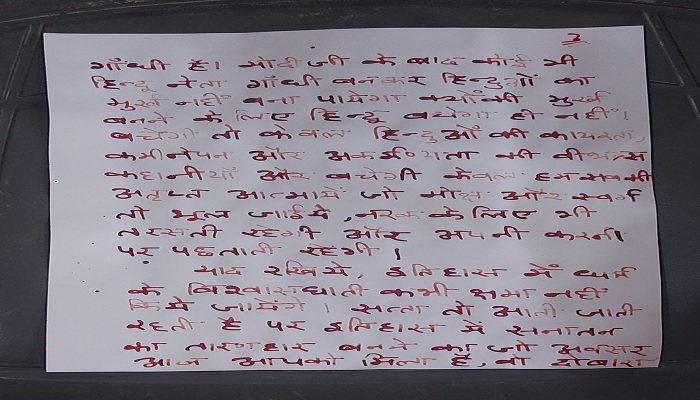 2
गाँधी है। मोदी जी के बाद कोई भी
हिन्दू नेता गाँधी बनकर हिन्दुओं का
मूर्ख नहीं बना पायेगा क्योंकी मूर्ख
बनने के लिए हिन्दू बचेगा ही नहीं।
बचेगी तो केवल हिन्दुओं की कायरता,
कमीनेपन और अकर्मण्यता की वीभत्स
कहानीयाँ और बचेगी केवल हम सबकी
अतृप्त आत्मायें जो मोक्ष और स्वर्ग
तो भूल जाईये, नरक के लिए भी
तरसती रहेगी और अपनी करनी
पर पछताती रहेगी।
याद रखिये, इतिहास में धर्म
के विश्वासघाती कभी क्षमा नहीं
किये जायेंगे। सत्ता तो आती जाती
रहती है पर इतिहास में सनातन
का तारणहार बनने का जो अवसर
आज आपको मिला है, वो दोबारा